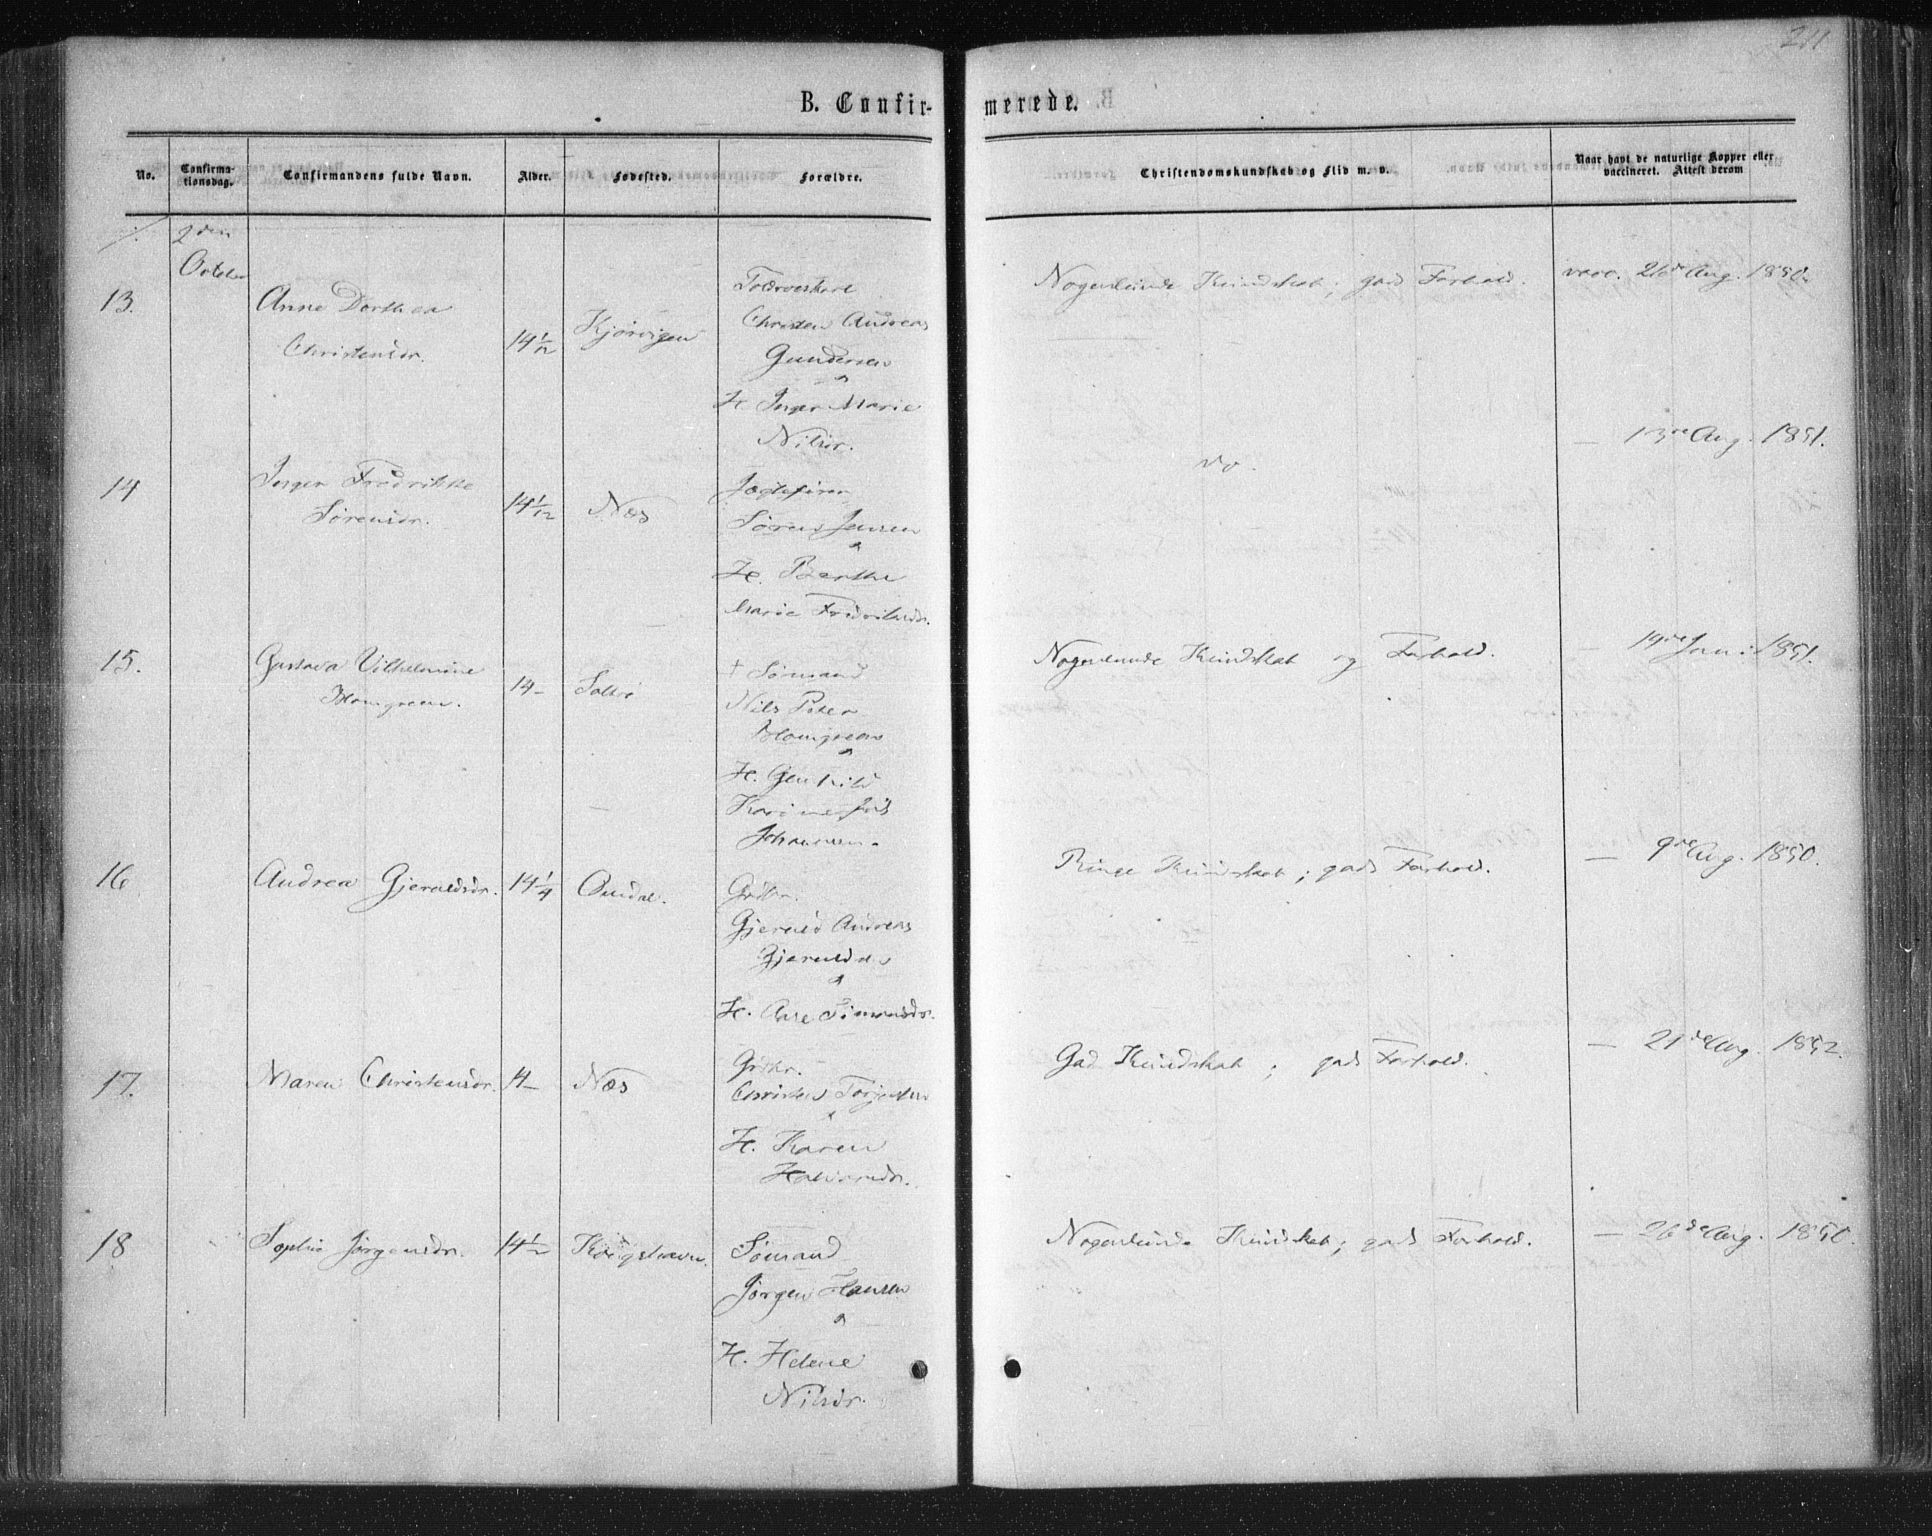 211
B. Confir- merede.
No. Confirma-tionsdag. Confirmandens fulde Navn. Alder. Fødested. Forældre. Christendomskundskab og Flid m. v. Naar havt de naturlige Kopper eller vaccineret. Attest derom
2den
October
13. Anne Dorthea
Christensdr. 14 1/12 Kjørvigen
Christen Andreas
Gundersen
H. Inger Marie
Nilsdr.
Nogenlunde Kundskab; god Forhold. vacc. 26de Aug. 1850.
14 Inger Fredrikke
Sørensdr. 14 1/12 Næs
Søren Jensen
H. Berthe
Marie Fredriksdr.
do. — 13de Aug. 1851.
15. Gustava Vilhelmine
Blomgreen. 14 -
† Sømand
Nils Peter
Blomgreen
H. Gunhild
Karine
Johannsen.
Nogenlunde Kundskab og Forhold. — 19de Jan: 1851.
16 Andrea Gjeruldsdr. 14 1/4 Omdal.
Gbdbr.
Gjeruld Andreas
Gjerulds
H. Ane Simonsdr.
Ringe Kundskab; gods Forhold. — 9de Aug. 1850.
17. Maren Christensdr. 14 - Næs
Gbdbr.
Christen Torjersen
H. Karen
Halvorsdr.
God Kundskab; gods Forhold. — 21de Aug. 1852.
18 Sophie Jørgensdr. 14 1/2 Krogshavn.
Sømand
Jørgen Hansen
H. Helene
Nilsdr.
Nogenlunde Kundskab; gods Forhold. — 26de Aug. 1850.